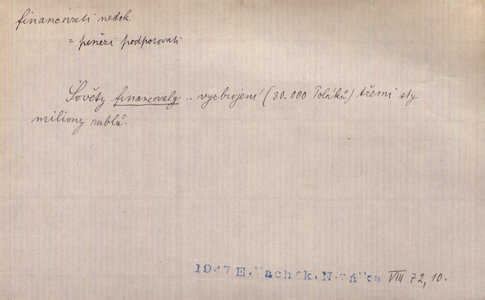 financovati nedok
= penězi podporovati
Sověty financovaly .. vyzbrojení (30.000 Poláků) třemi sty
miliony rublů.
1947 E. VIII 72, 10.